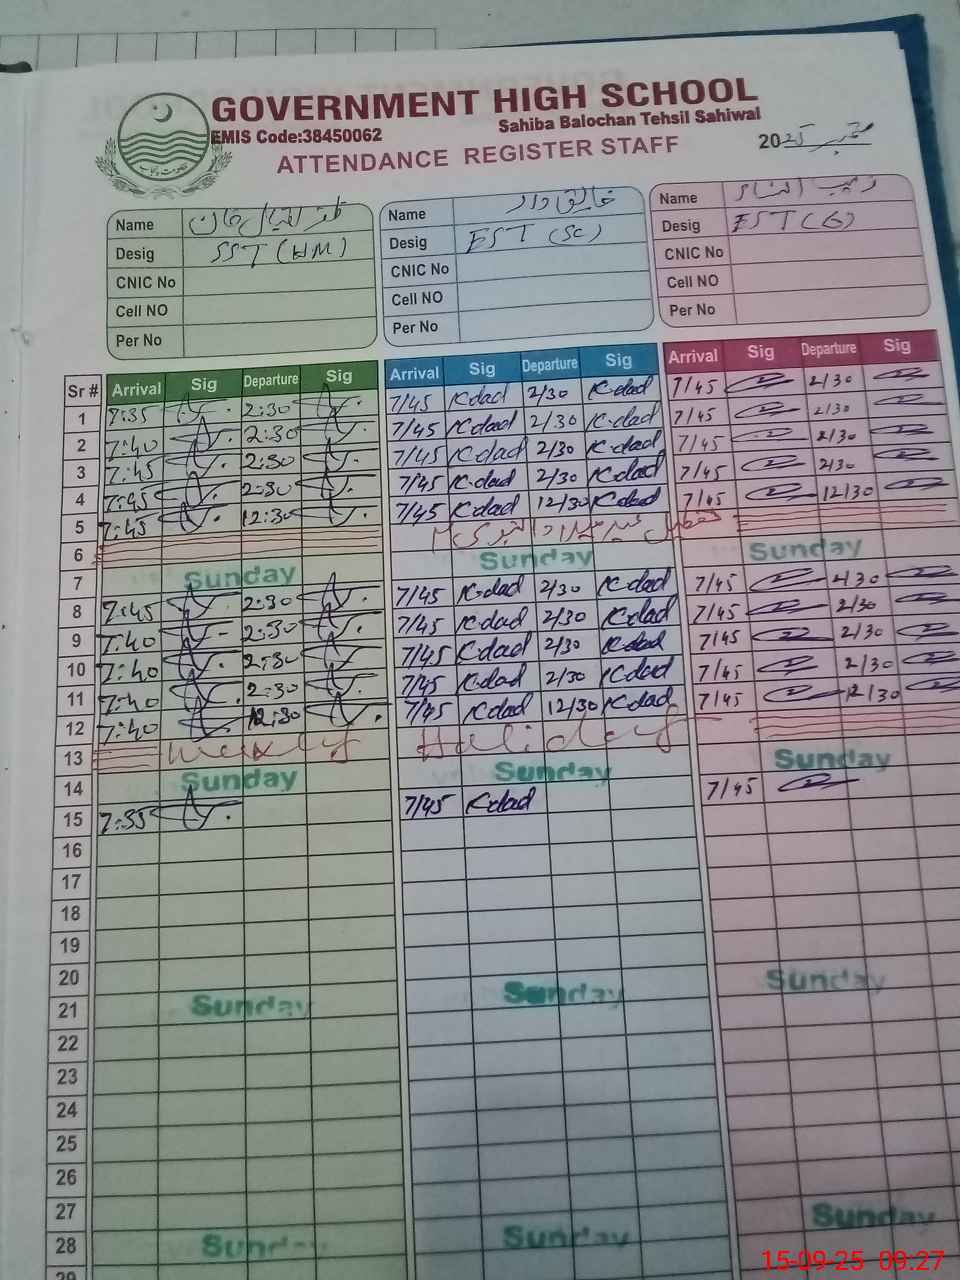 GOVERNMENT HIGH SCHOOL
EMIS Code:38450062 Sahiba Balochan Tehsil Sahiwal
ATTENDANCE REGISTER STAFF 2025 ستمبر
Name ظفر اقبال خان Name خالق داد Name زیب النساء
Desig SST (HM) Desig EST (SC) Desig EST (G)
CNIC No CNIC No CNIC No
Cell NO Cell NO Cell NO
Per No Per No Per No
Sr # Arrival Sig Departure Sig Arrival Sig Departure Sig Arrival Sig Departure Sig
1 7:35 2:30 7/45 K.dad 2/30 K.dad 7/45 2/30
2 7:40 2:30 7/45 K.dad 2/30 K.dad 7/45 2/30
3 7:45 2:30 7/45 K.dad 2/30 K.dad 7/45 2/30
4 7:45 2:30 7/45 K.dad 2/30 K.dad 7/45 2/30
5 7:45 12:30 7/45 K.dad 12/30 K.dad 7/45 12/30
6 تعطیل عید میلاد النبی
7 Sunday Sunday Sunday
8 7:45 2:30 7/45 K.dad 2/30 K.dad 7/45 2/30
9 7:40 2:30 7/45 K.dad 2/30 K.dad 7/45 2/30
10 7:40 2:30 7/45 K.dad 2/30 K.dad 7/45 2/30
11 7:40 2:30 7/45 K.dad 2/30 K.dad 7/45 2/30
12 7:40 12:30 7/45 K.dad 12/30 K.dad 7/45 12/30
13 Weekly Holiday
14 Sunday Sunday Sunday
15 7:35 7/45 K.dad 7/45
16
17
18
19
20
21 Sunday Sunday Sunday
22
23
24
25
26
27
28 Sunday Sunday Sunday
29
15-09-25 09:27